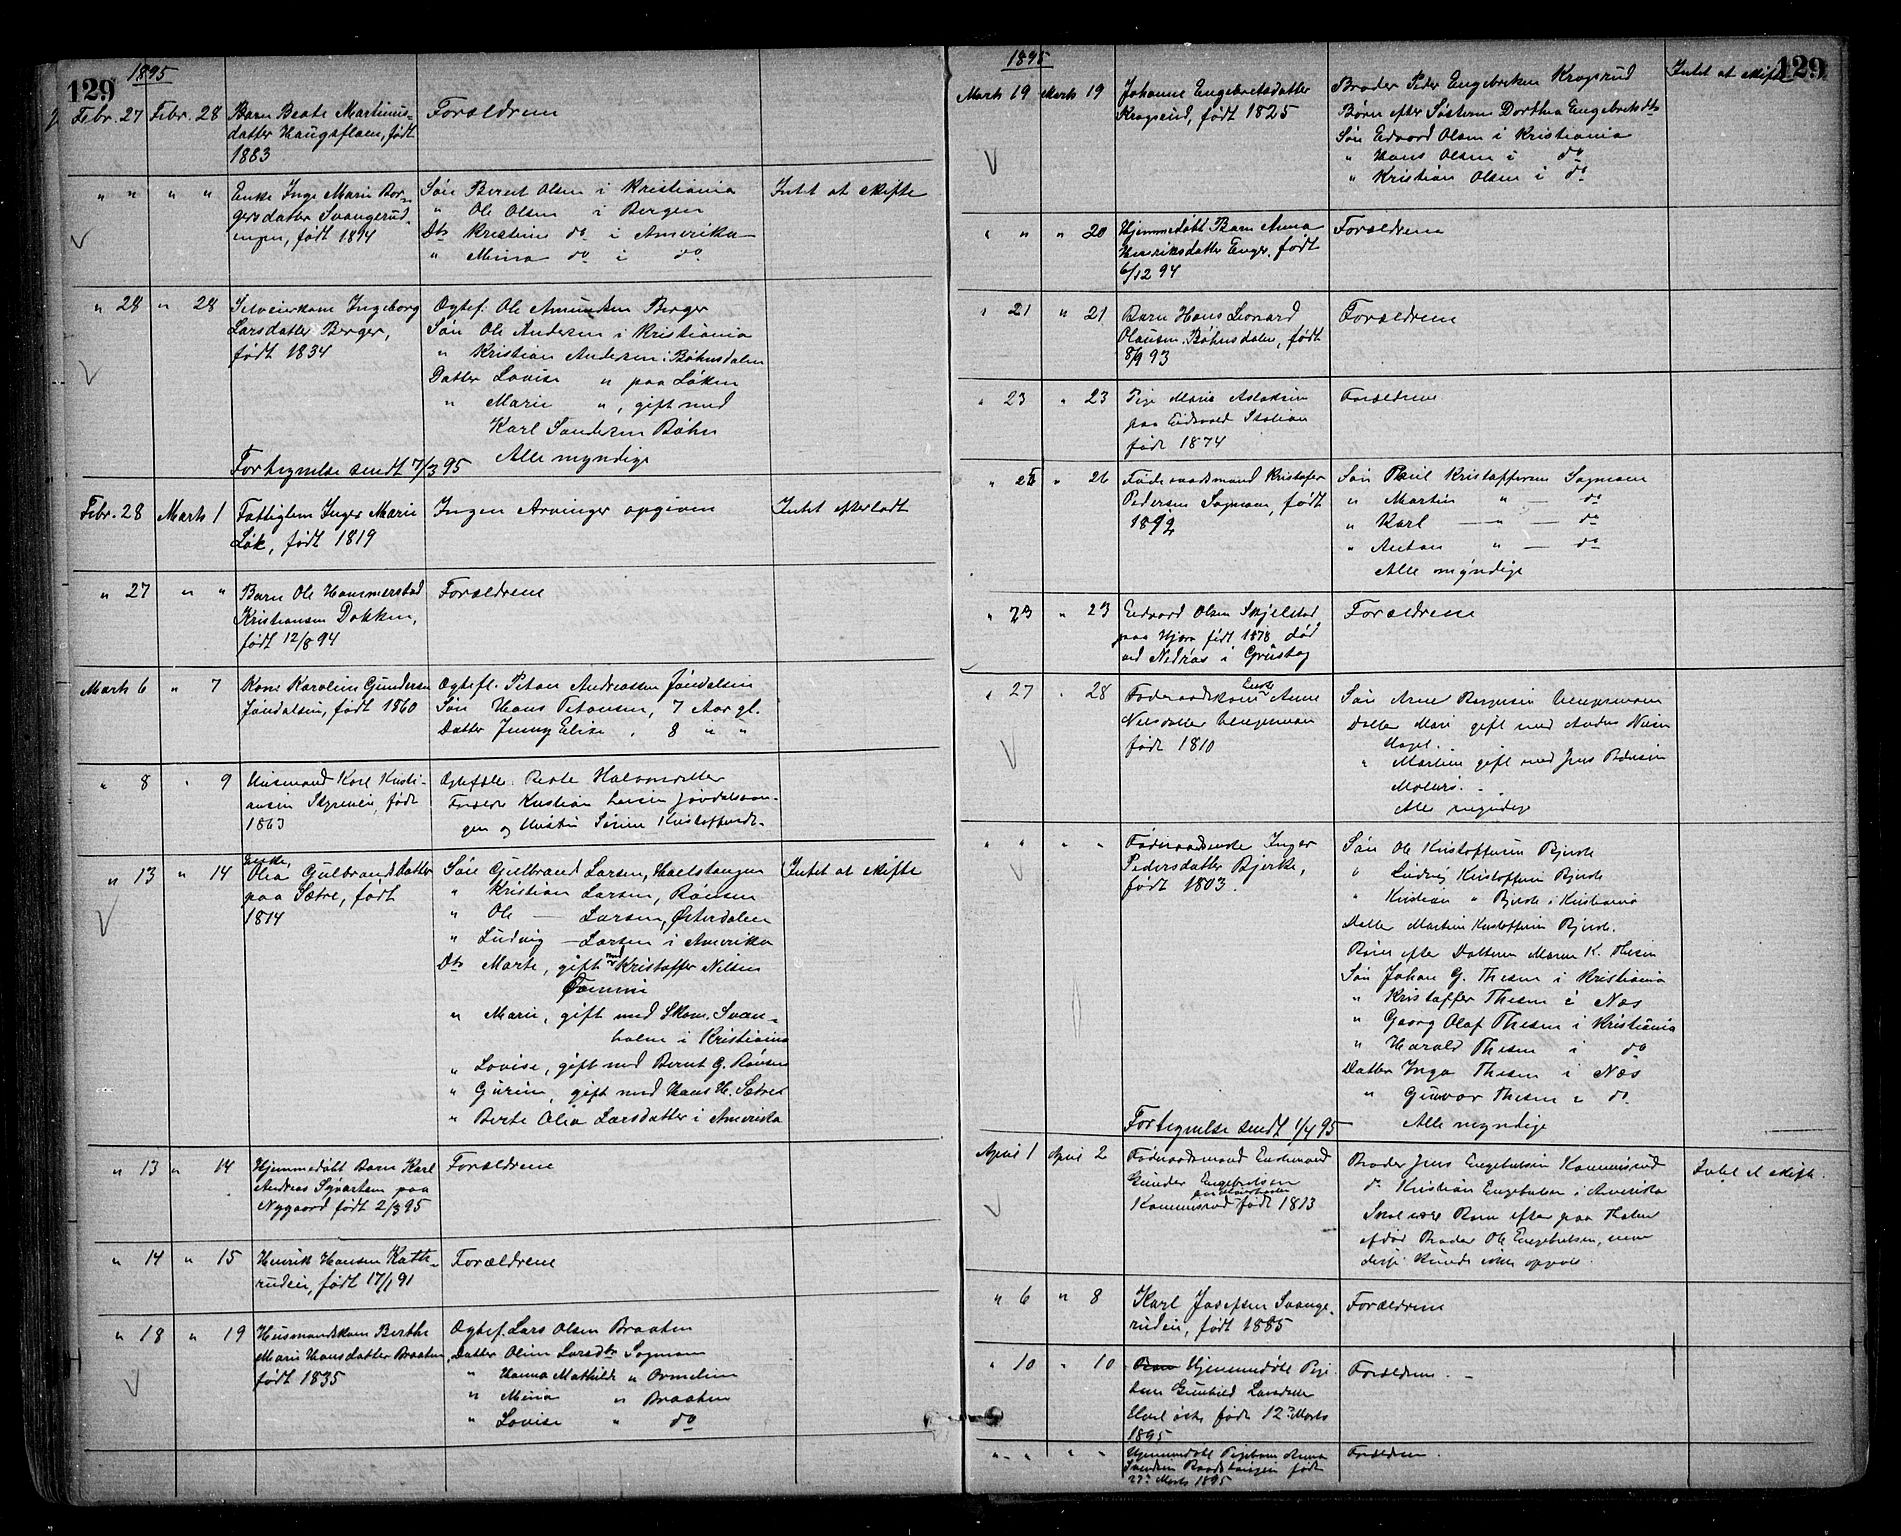 129
1895
Febr. 27 Febr. 28 Barn Beate Martinus- Forældrene
datter Haugsflaen, født
1883
" " " " Enke Inge Marie Bor- Søn Bernt Olsen i Kristiania Intet at skifte
gersdatter Svangerud- " Ole Olsen i Bergen
engen, født 1814 Dtr Kristine do i Amerika
" Mina do i do
" 28 " 28 Selveierkone Ingeborg Ogtef. Ole Amundsen Berger
Larsdatter Berger, Søn Ole Andersen i Kristiania
født 1834 " Kristian Andersen i Bøhnsdalen
Datter Lovise " paa Løken
" Marie ", gift med
Karl Sandersen Bøhn
Fortegnelse sendt 7/3 95 Alle myndige
Febr. 28 Marts 1 Fattiglem Inger Marie Ingen Arvinger opgiven Intet efterladt
Løk, født 1819
" 27 " " Barn Ole Hammerstad Forældrene
Kristiansen Dokken,
født 12/8 94
Marts 6 " 7 Kone Karoline Gundersen Ogtefl. Petan Andreassen Jøndalseie
Jøndalseie, født 1860 Søn Hans Petansen, 7 Aar gl.
Datter Jenny Elise , 8 " "
" 8 " 9 Husmand Karl Kristi- Ogtefæle. Berte Halvorsdatter
ansen Styreneie, født Forældre Kristian Larsen Jøndalsvan-
1863 gen og Hustru Sørine Kristoffersdt.
" 13 " 14 Enke, Olea Gulbrandsdatter Søn Gulbrand Larsen, Haelstangen Intet at skifte
paa Sætre, født " Kristian Larsen, Røisen
1814 " Ole — Larsen, Østerdalen
" Ludvig — Larsen i Amerika
Dtr Marte, gift med Kristoffer Nilsen
" Marie, gift med Skom. Svan-
holm i Kristiania
" Lovise, gift med Bernt G. Røisen
" Gurine, gift med Hans H. Sætre
" Berte Olea Larsdatter i Amerika
" 13 " 14 Hjemmedøbt Barn Karl Forældrene
Andreas Sivertsen paa
Nygaard født 2/3 95
" 14 " 15 Henrik Hansen Kath- Forældrene
rudeie, født 17/1 91
" 18 " 19 Husmandskone Berthe Ogtef. Lars Olsen Braaten
Marie Hansdatter Braaten, Datter Oline Larsdtr Sogmoen
født 1835 " Hanna Mathilde " Ormelien
" Mina " Braaten
" Lovise " do
129
1895
Marts 19 Marts 19 Johanne Engebretsdatter Broder Peder Engebretsen Krogsrud Intet at skifte
Krogsrud, født 1825 Børn efter Søsteren Dorthea Engebretsdtr
Søn Edvard Olsen i Kristiania
" Hans Olsen i do
" Kristian Olsen i do
" " " 20 Hjemmedøbt Barn Anna Forældrene
Henriksdatter Enger, født
6/12 94
" 21 " 21 Barn Hans Leonard Forældrene
Olausen Bøhnsdalen, født
8/9 93
" 23 " 23 Pige Marie Aslaksen Forældrene
paa Eidsvold Station
født 1874
" 26 " 26 Føderaadsmand Kristofer Søn Paul Kristoffersen Sogmoen
Pedersen Sogmoen, født " Martin " — do
" Karl — " — do
" Anton " — do
Alle myndige
" 23 " 23 Edvard Olsen Skjelstad Forældrene
paa Hjora født 1878 død
ved Nedras i Grustag
" 27 " 28 Føderaadskone Enke Anne Søn Arne Borgersen
Nilsdatter Datter Mari gift med Anders Nilsen
født 1810
" Martine gift med Jens
Alle myndige
" " " " Føderaadsenke Inger Søn Ole Kristoffersen Bjerke
Pedersdatter Bjerke, " Ludvig Kristoffersen Bjerke
født 1803 " Kristian " Bjerke i Kristiania
Datter Martine Kristoffersen Bjerke.
Børn efter Datteren Maren K. Thesen
Søn Johan G. Thesen i Kristiania
" Kristoffer Thesen i Næs
" Georg Olaf Thesen i Kristiania
" Harald Thesen i do
Datter Inga Thesen i Næs
" Gunvor Thesen i do
Fortegnelse sendt 1/4 95 Alle myndige
April 1 April 2 Føderaadsmand Enkemand Broder Jens Engebretsen Kommisrud Intet at skifte.
Gunder Engebretsen do Kristian Engebretsen i Amerika
Kommisrud født 1813 Skal være Børn efter paa Thoten
afdøde Broder Ole Engebretsen, men
disse kunde ikke opgives.
" 6 " 8 Karl Josefsen Svange- Forældrene
rudeie, født 1885
" 10 " 10 Hjemmedøbt Pige- Forældrene. —
barn Gunhild Larsdatter
født 12te Marts
1895
" " " " Hjemmedøbt Pigebarn Anna Forældrene.
født
27de Marts 1895